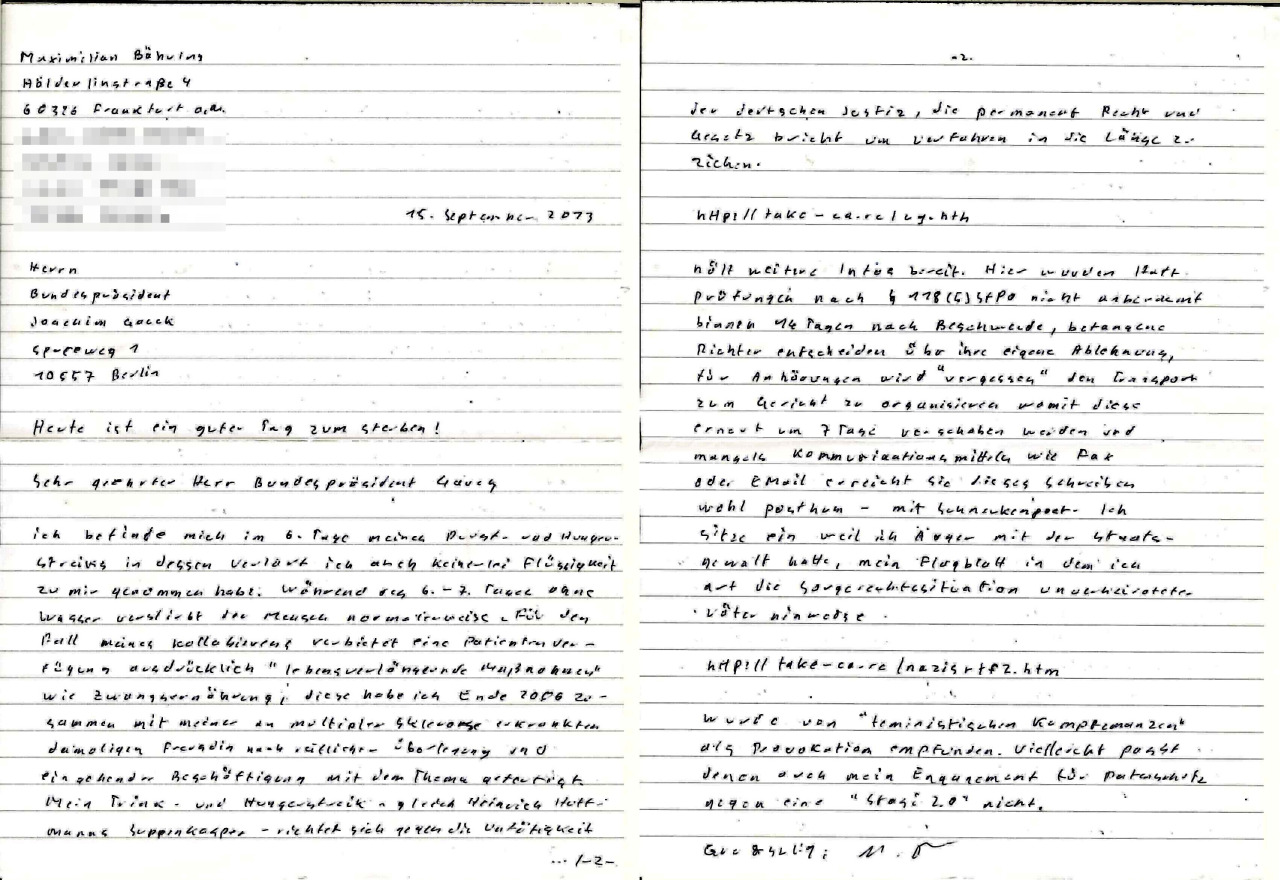 Maximilian Bähring
Hölderlinstraße 4
60316 Frankfurt a.M.
15. September 2013
Herrn
Bundespräsident
Joachim Gauck
Spreeweg 1
10557 Berlin
Heute ist ein guter Tag zum sterben!
Sehr geehrter Herr Bundespräsident Gauck
ich befinde mich im 6. Tage meines Durst- und Hunger-
streiks in dessen verlauf ich auch keinerlei Flüssigkeit
zu mir genommen habe. Während des 6. - 7. Tages ohne
Wasser verstirbt der Mensch normalerweise. Für den
Fall meines kollabierens verbietet eine Patientenver-
fügung ausdrücklich "lebensverlängernde Maßnahmen"
wie Zwangsernährung; diese habe ich Ende 2006 zu-
sammen mit meiner an multipler Sklerose erkrankten
damaligen Freundin nach reiflicher Überlegung und
eingehender Beschäftigung mit dem Thema gefertigt.
Mein Trink- und Hungerstreik - gleich Heinrich Hoff-
manns Suppenkasper - richtet sich gegen die Untätigkeit
... /-2-
-2-
der deutschen Justiz, die permanent Recht und
Gesetz bricht um verfahren in die Länge zu
ziehen.
http://take-ca.re/ug.htm
hält weitere Infos bereit. Hier wurden Haft-
prüfungen nach § 118(5) StPO nicht anberaumt
binnen 14 Tagen nach Beschwerde, befangene
Richter entscheiden über ihre eigene Ablehnung,
für Anhörungen wird "vergessen" den Transport
zum Gericht zu organisieren womit diese
erneut um 7 Tage verschoben werden und
mangels Kommunikationsmitteln wie Fax
oder EMail erreicht sie dieses schreiben
wohl posthum - mit Schneckenpost. Ich
sitze ein weil ich Ärger mit der Staats-
gewalt hatte, mein Flugblatt in dem ich
auf die Sorgerechtssituation unverheirateter
Väter hinweise.
http://take-ca.re/nazisrtf2.htm
wurde von "feministischen Kampfemanzen"
als Provokation empfunden. Vielleicht passt
denen auch mein Engagement für Datenschutz
gegen eine "Stasi 2.0" nicht.